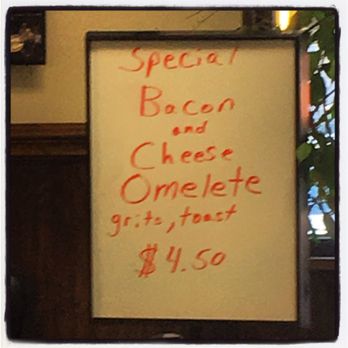 Special
Bacon
and
Cheese
Omelete
grits, toast
$4.50